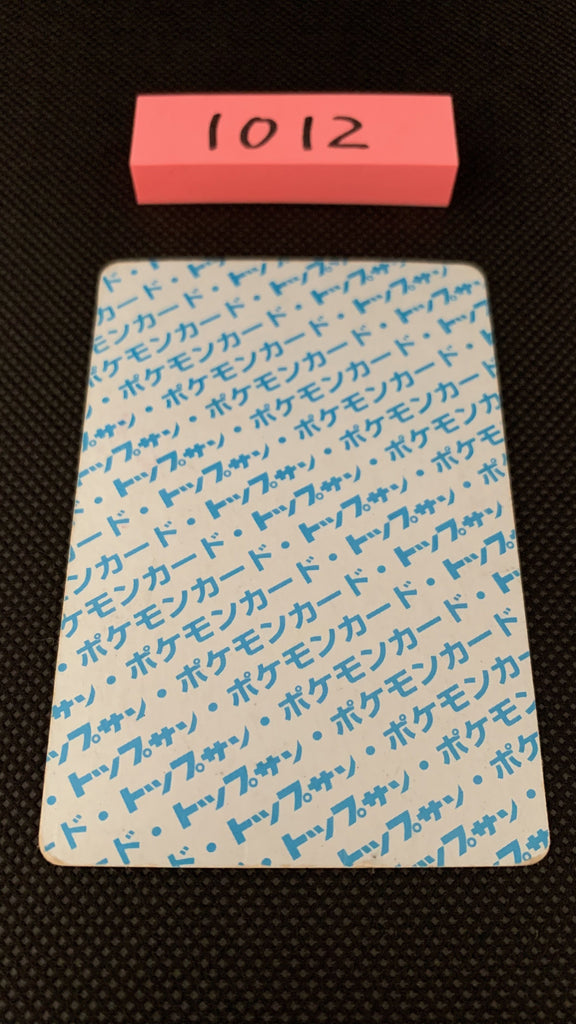 1012
ド・ト
カード・トッ
モンカード・トップサ
ポケモンカード・トップサン
・ポケモンカード・トップサン
プサン・ポケモンカード・トッ
トップサン・ポケモンカード・
・トップサン・ポケモンカード
ード・トップサン・ポケモンカ
ンカード・トップサン・ポケモ
ケモンカード・トップサン・ポ
・ポケモンカード・トップサン
サン・ポケモンカード・トップ
ップサン・ポケモンカード・ト
・トップサン・ポケモンカード
ド・トップサン・ポケモンカ
ド・トップサン・ポケモン
ド・トップサン・ポ
トップサン・
プサン